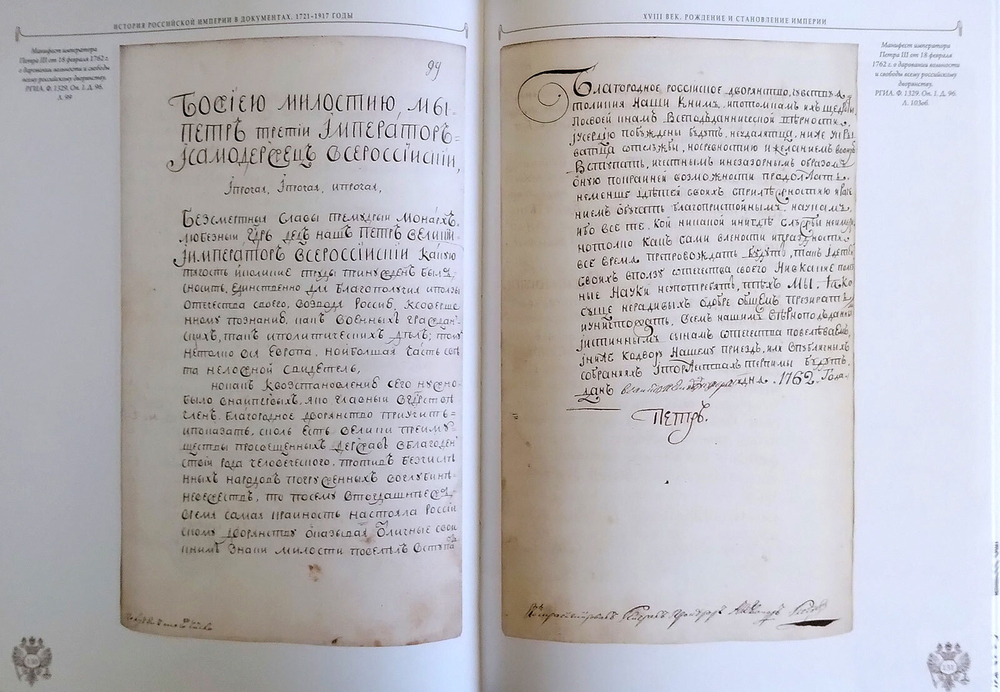 ИСТОРИЯ РОССИЙСКОЙ ИМПЕРИИ В ДОКУМЕНТАХ. 1721–1917 ГОДЫ
Манифест императора
Петра III от 18 февраля 1762 г.
о даровании вольности и свободы
всему российскому дворянству.
РГИА. Ф. 1329. Оп. 1. Д. 96.
Л. 99
99
БОЖІЕЮ МИЛОСТИЮ, МЫ
ПЕТРЪ третіи ІМПЕРАТОРЪ
ІСАМОДЕРЖЕЦЪ ВСЕРОССІИСКІИ,
Іпрочая, Іпрочая, ипрочая,
Безсмертныя Славы премудрыи Монархъ,
любезный Гдрь дедъ нашъ Петръ великіи
Імператоръ всероссіискіи какую
тягость иколикие труды принужденъ былъ
сносить, единственно для благополучия ипользы
Отечества своего, возводя Россию, ксоверше
нному познанию, какъ военныхъ граждан
скихъ, такъ иполитическихъ дѣлъ; тому
нетолко вся Европа, но ибольшая часть свѣ
та неложной свидетель,
но какъ квозстановлению сего нужно
было внаипервыхъ, яко главный вгдрстве
членъ, благородное дворянство приучить
ипоказать, сколь есть велики преиму
щества просвещенныхъ державъ вблагоден
ствіи рода человеческого, противъ безчисле
нныхъ народовъ погруженныхъ воглубинѣ
невежествъ, то посему втогдашнее жъ
время самая крайность настояла россіи
скому дворянству оказывая отличные свои
книмъ знаки милости повелѣлъ вступа
XVIII ВЕК. РОЖДЕНИЕ И СТАНОВЛЕНИЕ ИМПЕРИИ
Манифест императора
Петра III от 18 февраля
1762 г. о даровании вольности
и свободы всему российскому
дворянству.
РГИА. Ф. 1329. Оп. 1. Д. 96.
Л. 103об.
Благородное россійское дворянство, чувствуя
толикия наши книмъ, ипотомкамъ ихъ щедроты
Посвоей кнамъ Всеподданнической вѣрности,
ІУсердію побуждены будутъ, неудалятца, ниже укры
ватца отслужбы, носревностию ижеланиемъ воную
Вступать, ичестнымъ инезазорнымъ образомъ
оную покрайней возможности продолжать,
неменше Ідѣтей своихъ сприлѣжностию ираче
ниемъ обучать благопристойнымъ наукамъ,
ибо все те, кои никакой инигдѣ службы неимѣли
нотолко какъ сами влености ипраздности
все время препровождать будутъ, такъ Ідетей
своихъ вползу отечества своего Нивкакие полез
ные Науки неупотреблять, тѣхъ МЫ, яко
суще нерадивыхъ одобре общемъ презирать
иуничтожать, всемъ нашимъ вѣрноподданнымъ
Істиннымъ сынамъ отечества повелѣваемъ,
Ініже Кодвору Нашему приездъ, или впубличныхъ
собранияхъ Іторжествахъ терпимы будутъ,
данъ 1762. Года
ПЕТРЪ.